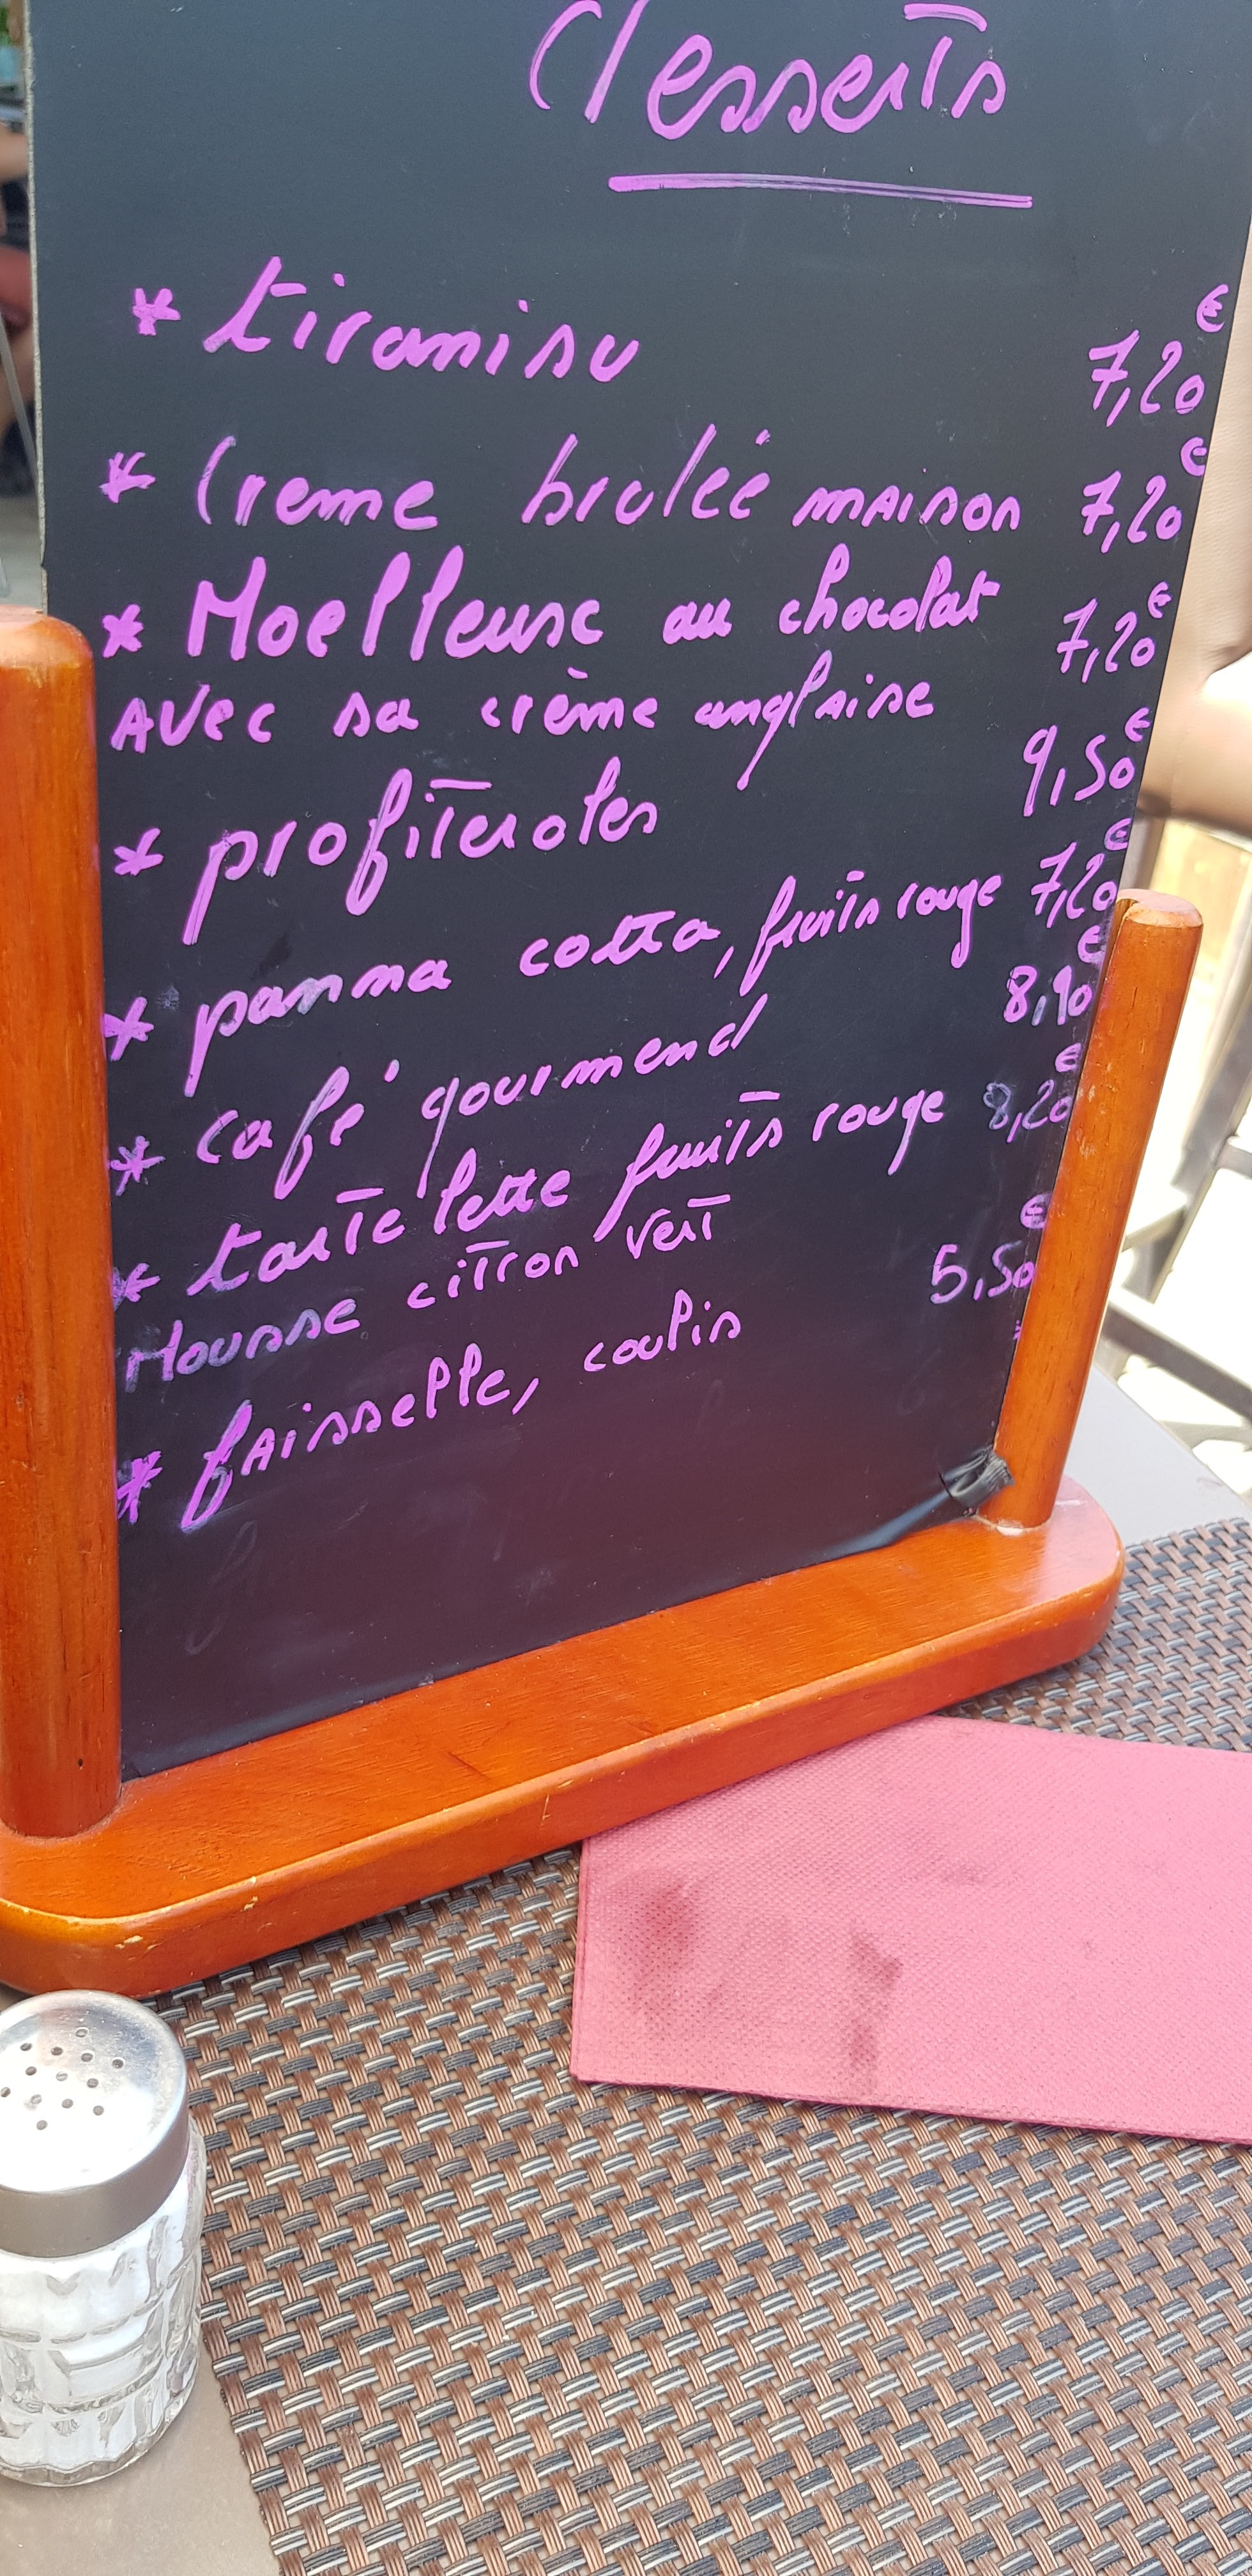 desserts
* tiramisu 7,20€
* Creme brulée maison 7,20€
* Moelleuse au chocolat 7,20€
avec sa crème anglaise
* profiteroles 9,50€
* panna cotta, fruits rouge 7,20€
* café gourmend 8,90€
* tartelette fruits rouge 8,20€
Mousse citron vert
* faisselle, coulis 5,50€